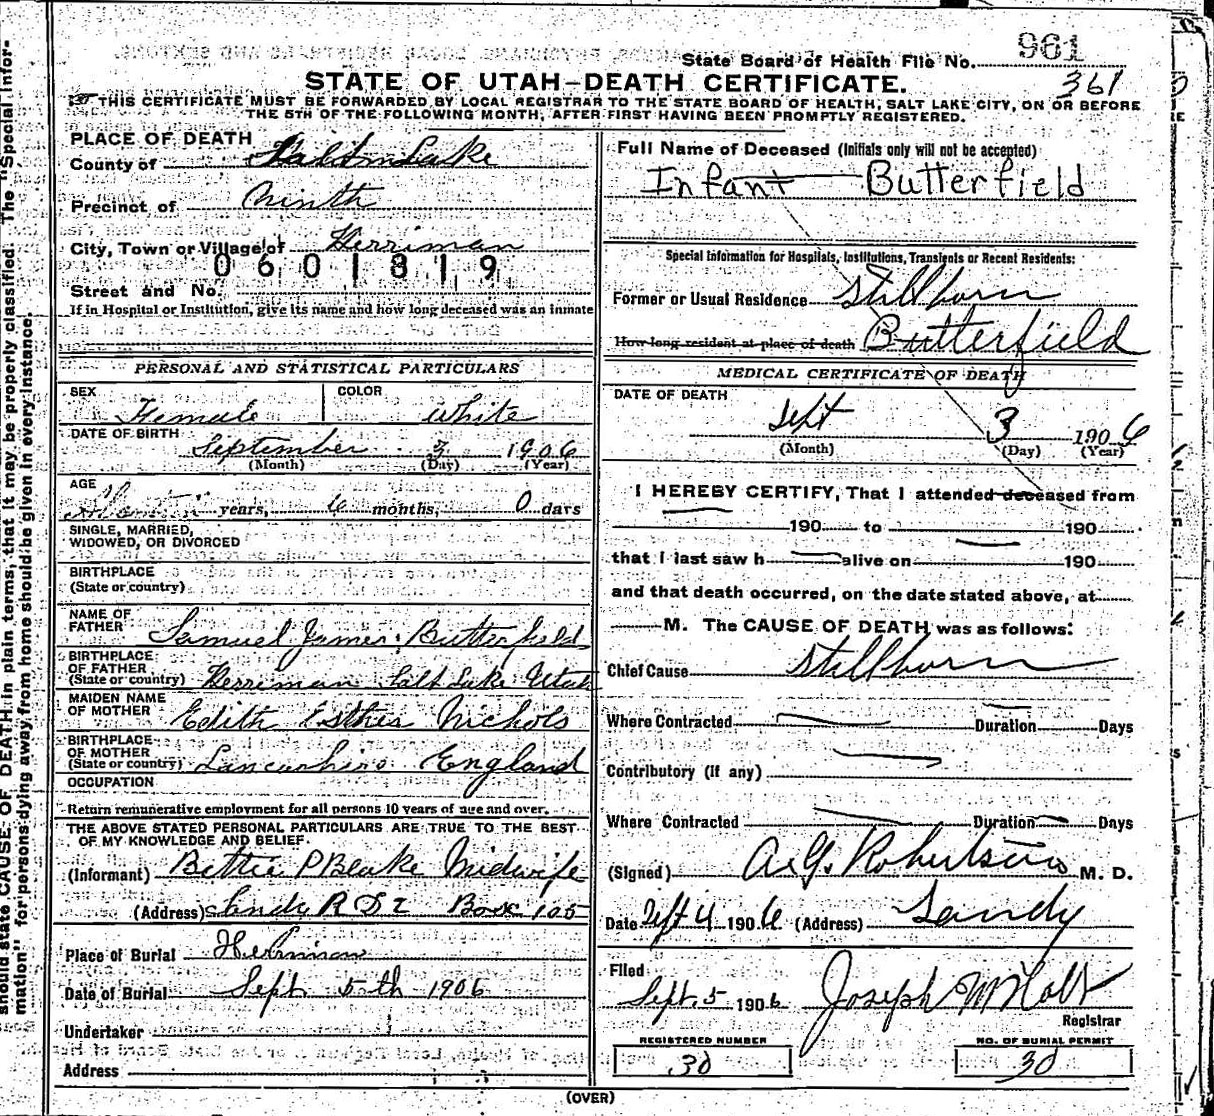 State Board of Health File No. 961
361
STATE OF UTAH—DEATH CERTIFICATE.
THIS CERTIFICATE MUST BE FORWARDED BY LOCAL REGISTRAR TO THE STATE BOARD OF HEALTH, SALT LAKE CITY, ON OR BEFORE
THE 5TH OF THE FOLLOWING MONTH, AFTER FIRST HAVING BEEN PROMPTLY REGISTERED.
PLACE OF DEATH
County of Salt Lake
Precinct of Ninth
City, Town or Village of Herriman
0601819
Street and No.
If in Hospital or Institution, give its name and how long deceased was an inmate
PERSONAL AND STATISTICAL PARTICULARS
SEX Female COLOR White
DATE OF BIRTH September 3 1906
(Month) (Day) (Year)
AGE years, 6 months, 0 days
SINGLE, MARRIED,
WIDOWED, OR DIVORCED
BIRTHPLACE
(State or country)
NAME OF
FATHER Samuel James Butterfield
BIRTHPLACE
OF FATHER
(State or country) Herriman Salt Lake Utah
MAIDEN NAME
OF MOTHER Edith Esther Nichols
BIRTHPLACE
OF MOTHER
(State or country) Lancashire England
OCCUPATION
Return remunerative employment for all persons 10 years of age and over.
THE ABOVE STATED PERSONAL PARTICULARS ARE TRUE TO THE BEST
OF MY KNOWLEDGE AND BELIEF.
(Informant) Bettie P Blake Midwife
(Address) Sandy R D 2 Box 105
Place of Burial Herriman
Date of Burial Sept 5th 1906
Undertaker
Address
Full Name of Deceased (Initials only will not be accepted)
Infant Butterfield
Special Information for Hospitals, Institutions, Transients or Recent Residents:
Former or Usual Residence Stillborn
How long resident at place of death Butterfield
MEDICAL CERTIFICATE OF DEATH
DATE OF DEATH
Sept 3 1906
(Month) (Day) (Year)
I HEREBY CERTIFY, That I attended deceased from
190 to 190
that I last saw h alive on 190
and that death occurred, on the date stated above, at
M. The CAUSE OF DEATH was as follows:
Chief Cause Stillborn
Where Contracted Duration Days
Contributory (if any)
Where Contracted Duration Days
(Signed) Robertson M. D.
Date Sept 4 1906 (Address) Sandy
Filed
Sept 5 1906 Joseph M Holt
Registrar
REGISTERED NUMBER
30
NO. OF BURIAL PERMIT
30
(OVER)
should state CAUSE OF DEATH in plain terms, that it may be properly classified. The "Special Infor-
mation" for persons dying away from home should be given in every instance.